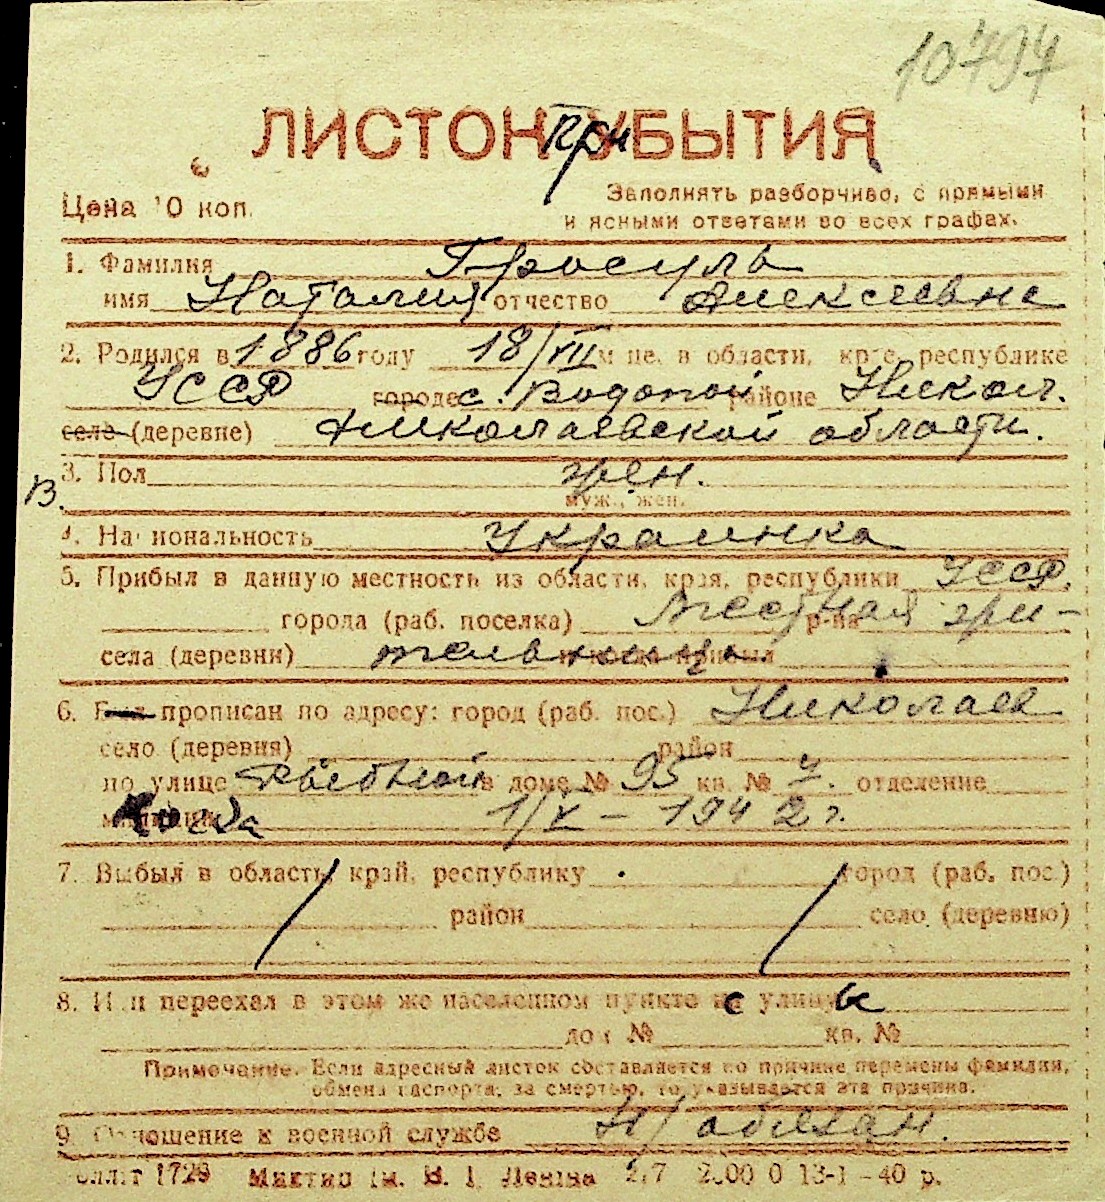 10797
ЛИСТОК При УБЫТИЯ
Цена 10 коп.
Заполнять разборчиво, с прямыми
и ясными ответами во всех графах.
1. Фамилия Гросуль
имя Наталия отчество Алексеевна
2. Родился в 1886 году 18/VII м-це, в области, крае, республике
УССР городе с. Водопой районе Никол.
селе (деревне) Николаевской области.
3. Пол жен.
В.
муж., жен.
4. Национальность Украинка
5. Прибыл в данную местность из области, края, республики УССР.
города (раб. поселка) Местная р-на жи-
села (деревни) тельница и когда прибыл
6. Был прописан по адресу: город (раб. пос.) Николаев
село (деревня) район
по улице Рыбной в доме № 95 кв. № 7. отделение
милиции Когда 1/V - 1942 г.
7. Выбыл в область, край, республику город (раб. пос.)
район село (деревню)
8. Или переехал в этом же населенном пункте с улицы
дом № кв. №
Примечание. Если адресный листок составляется по причине перемены фамилии,
обмена паспорта, за смертью, то указывается эта причина.
9. Отношение к военной службе Н/обязан.
1728 им. В. І. Леніна 2.00 0 13-1 - 40 р.